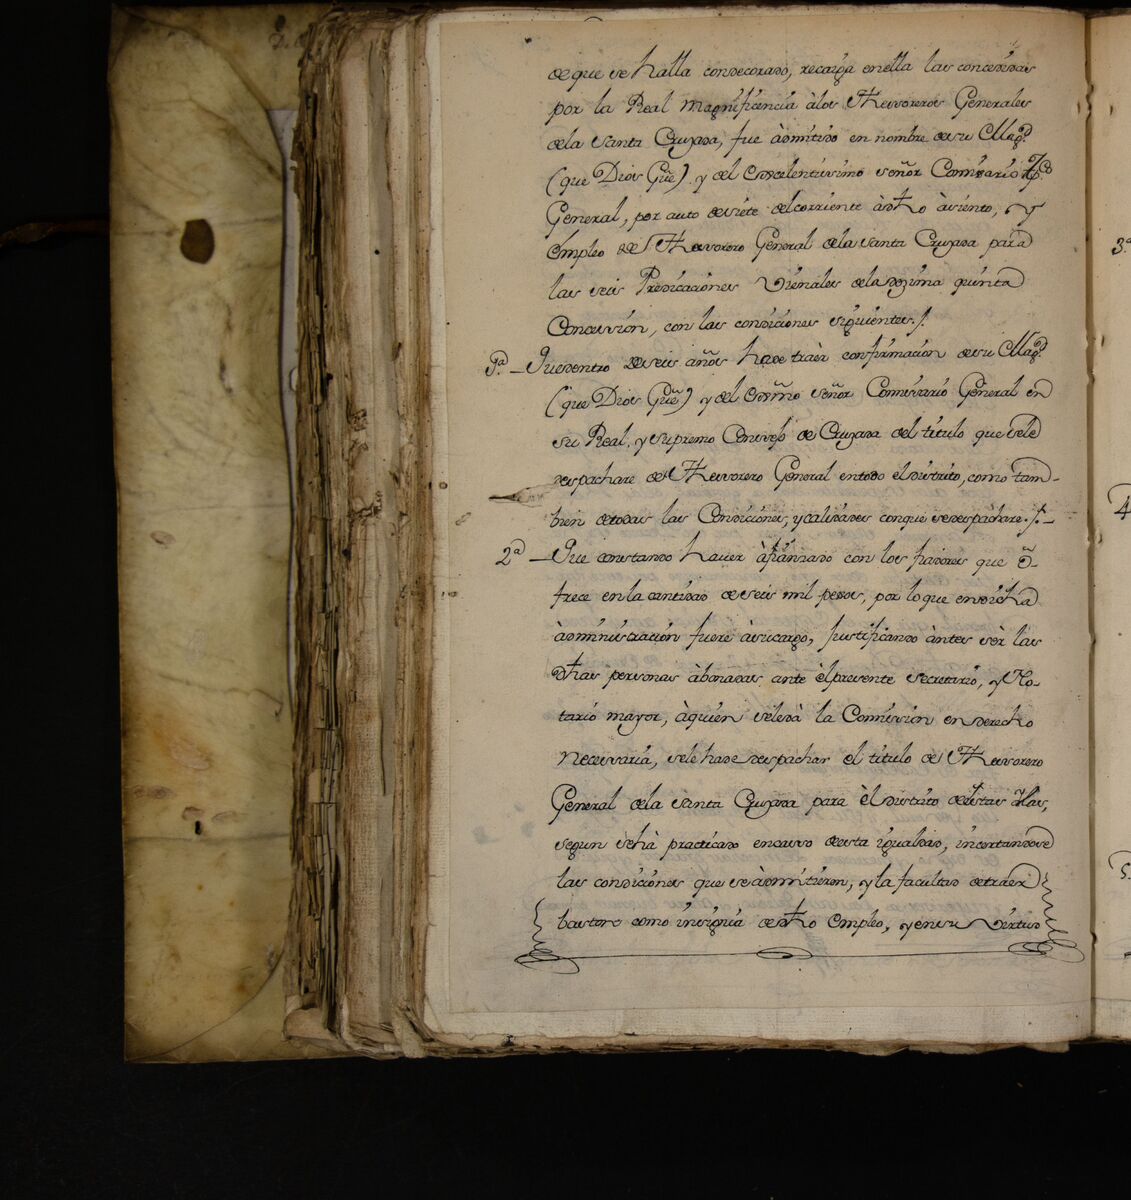 de que se halla condecorado, recaiga en ella las concedidas
por la Real Magnificencia à los Thesoreros Generales
de la Santa Cruzada, fue àdmitido en nombre de su Magd.
(que Dios Gue) y del Excelentissimo señor Comisario
General, por auto de siete del corriente à dho àsiento, y
Empleo de Thesorero General de la Santa Cruzada para
las seis Predicaciones Vienales de la dezima quinta
Concession, con las condiciones siguientes./.
1ª_ Que dentro de seis años ha de traèr confirmacion de su Magd.
(que Dios Gue) y del Exmo señor Commisario General en
su Real, y supremo Consejo de Cruzada del titulo que se le
despachare de Thesorero General en todo el distrito, como tam-
bien de todas las Condiciones, y calidades con que se despachare./.
2ª_ Que constando haver àfianzado con los fiadores que o-
frece en la cantidad de seis mil pessos, por lo que en dicha
àdministracion fuere à su cargo, justificando àntes sèr las
dhas personas àbonadas ante èl presente Secretario, y No-
tario mayor, à quien se le dà la Comission en derecho
necessaria, se le ha de despachar el titulo de Thesorero
General de la Santa Cruzada para èl distrito de estas Yslas,
segun se hà practicado en casso de esta igualdad, incertandose
las condiciones que se àdmitieren, y la facultad de traèr
baston como insignia de dho Empleo, y en su Virtud
3.ª
4
5.